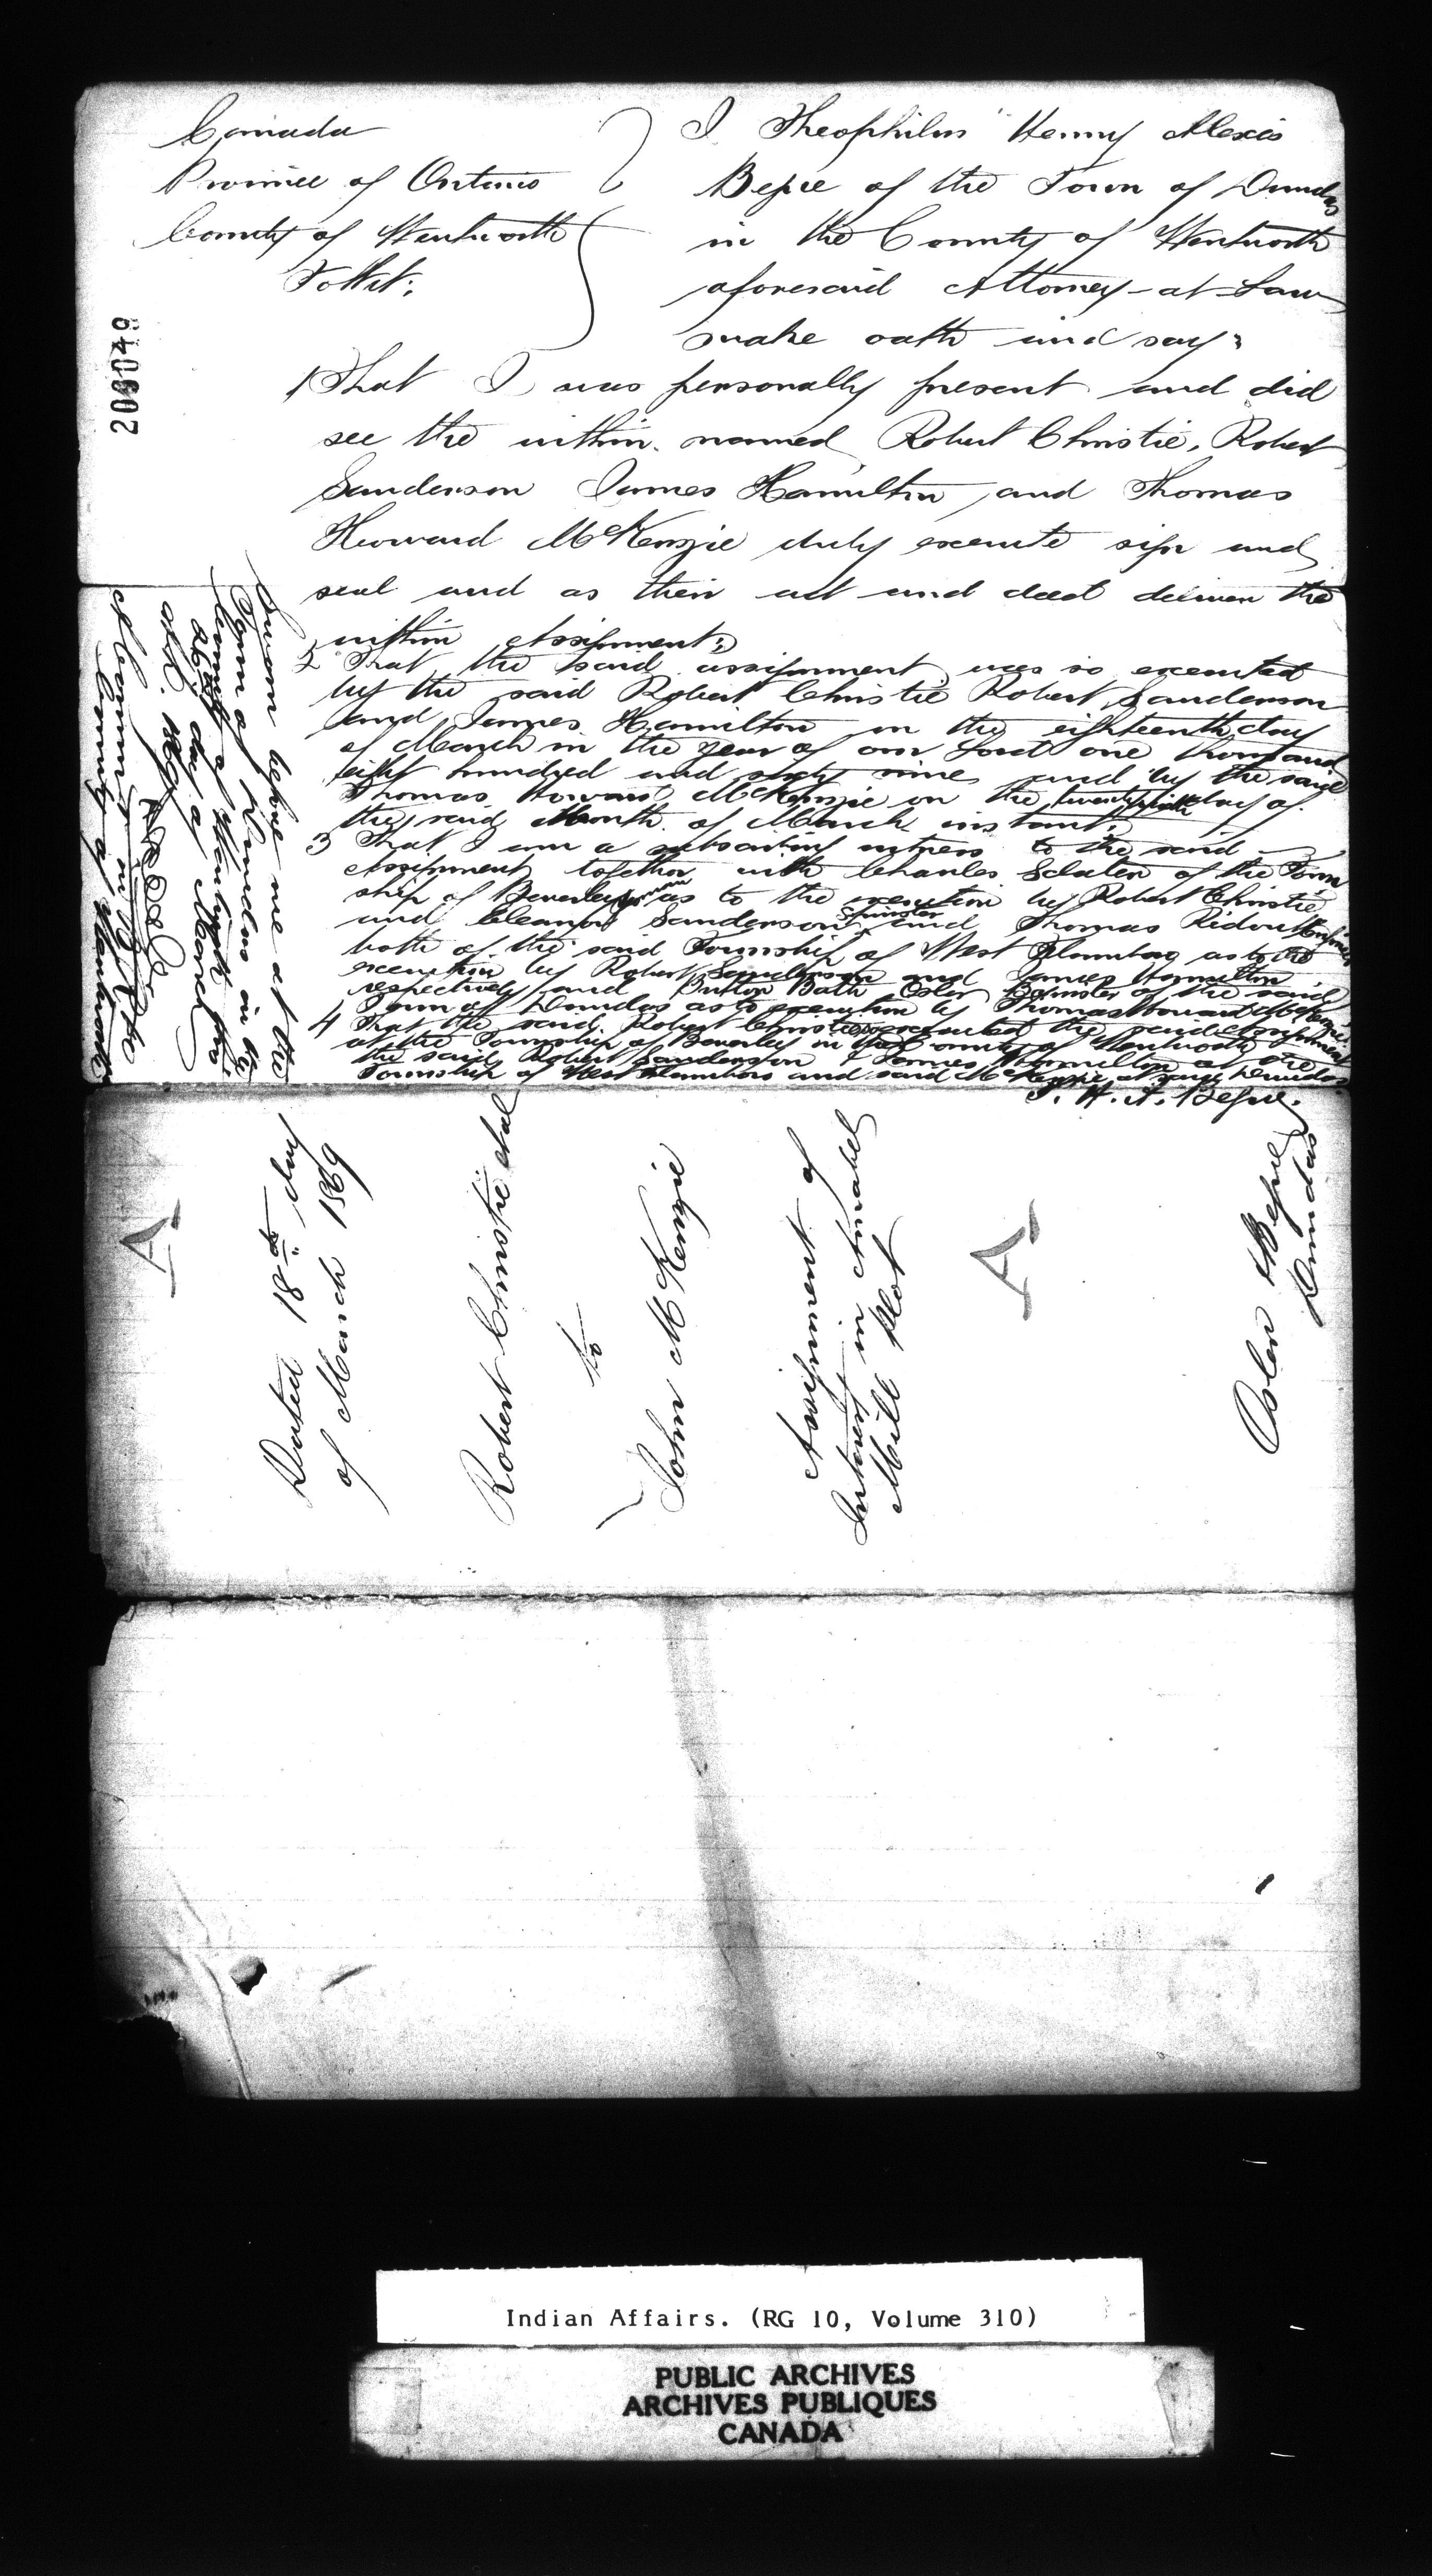 Canada
Province of Ontario
County of Wentworth
To Wit:
I Theophilus Henry Alexis
Begue of the Town of Dundas
in the County of Wentworth
aforesaid Attorney-at-Law
make oath and say:
1 That I was personally present and did
see the within named Robert Christie, Robert
Sanderson James Hamilton and Thomas
Howard McKenzie duly execute sign and
seal and as their act and deed deliver the
within Assignment:
2 That the said assignment was so executed
by the said Robert Christie Robert Sanderson
and James Hamilton on the eighteenth day
of March in the year of our Lord one thousand
eight hundred and sixty nine and by the said
Thomas Howard McKenzie on the twenty sixth day of
the said Month of March instant.
3 That I am a subscribing witness to the said
Assignment together with Charles Sclater of the Town
ship of Beverley as to the execution by Robert Christie
and Eleanor Sanderson Spinster and Thomas Ridout
both of the said Township of West Flamboro as to the
execution by Robert Sanderson and James Hamilton
respectively and Britton Bath Osler Barrister of the said
Town of Dundas as to execution by Thomas Howard McKenzie
4 That the said Robert Christie executed the said Assignment
at the Township of Beverley in the County of Wentworth
the said Robert Sanderson & James Hamilton at the
Township of West Flamboro and said McKenzie at said Dundas
T. H. A. Begue.
Sworn before me at the
Town of Dundas in the
County of Wentworth this
26th day of March
A.D. 1869
A Commr in B.R. &c
County of Wentworth
208049
A
Dated 18th day
of March 1869
Robert Christie et al
to
John McKenzie
Assignment of
Interest in Amabel
Mill Plot
A
Osler & Begue
Dundas
Indian Affairs. (RG 10, Volume 310)
PUBLIC ARCHIVES
ARCHIVES PUBLIQUES
CANADA